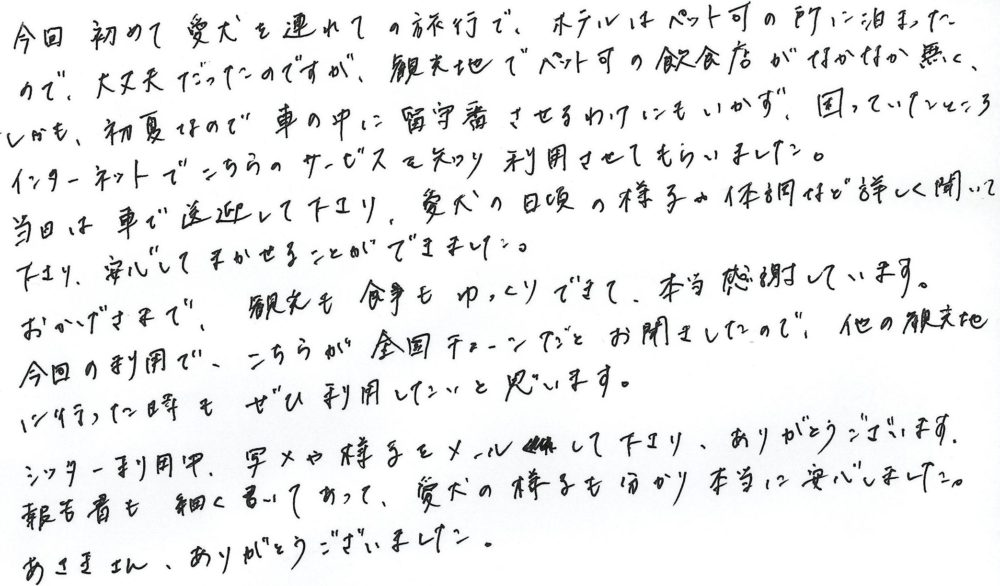 今回 初めて 愛犬を連れての旅行で、ホテルはペット可の所に泊まった
ので、大丈夫だったのですが、観光地でペット可の飲食店がなかなか無く、
しかも、初夏なので 車の中に 留守番させるわけにもいかず、困っていたところ
インターネットでこちらのサービスを知り 利用させてもらいました。
当日は 車で送迎して下さり、愛犬の日頃の様子や体調など詳しく聞いて
下さり、安心してまかせることができました。
おかげさまで、観光も 食事も ゆっくりできて、本当感謝しています。
今回の利用で、こちらが全国チェーンだとお聞きしたので、他の観光地
に行った時も ぜひ利用したいと思います。
シッター利用中、写メや様子をメールして下さり、ありがとうございます。
報告書も 細く書いてあって、愛犬の様子も分かり 本当に安心しました。
あさきさん、ありがとうございました。